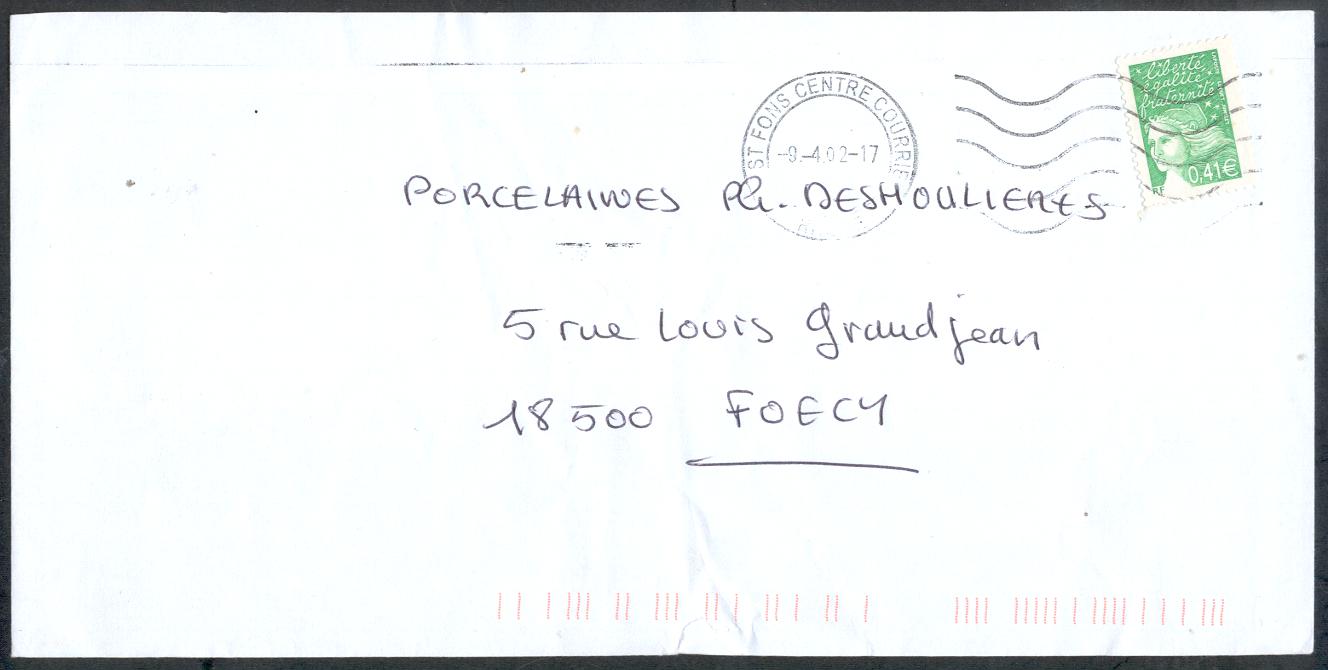 ST FONS CENTRE COURRIE
-9.-4.02-17
liberté
égalité
fraternité
0,41€
RF
PORCELAINES Ph. DESHOULIERES
5 rue Louis Grandjean
18500 FOECY